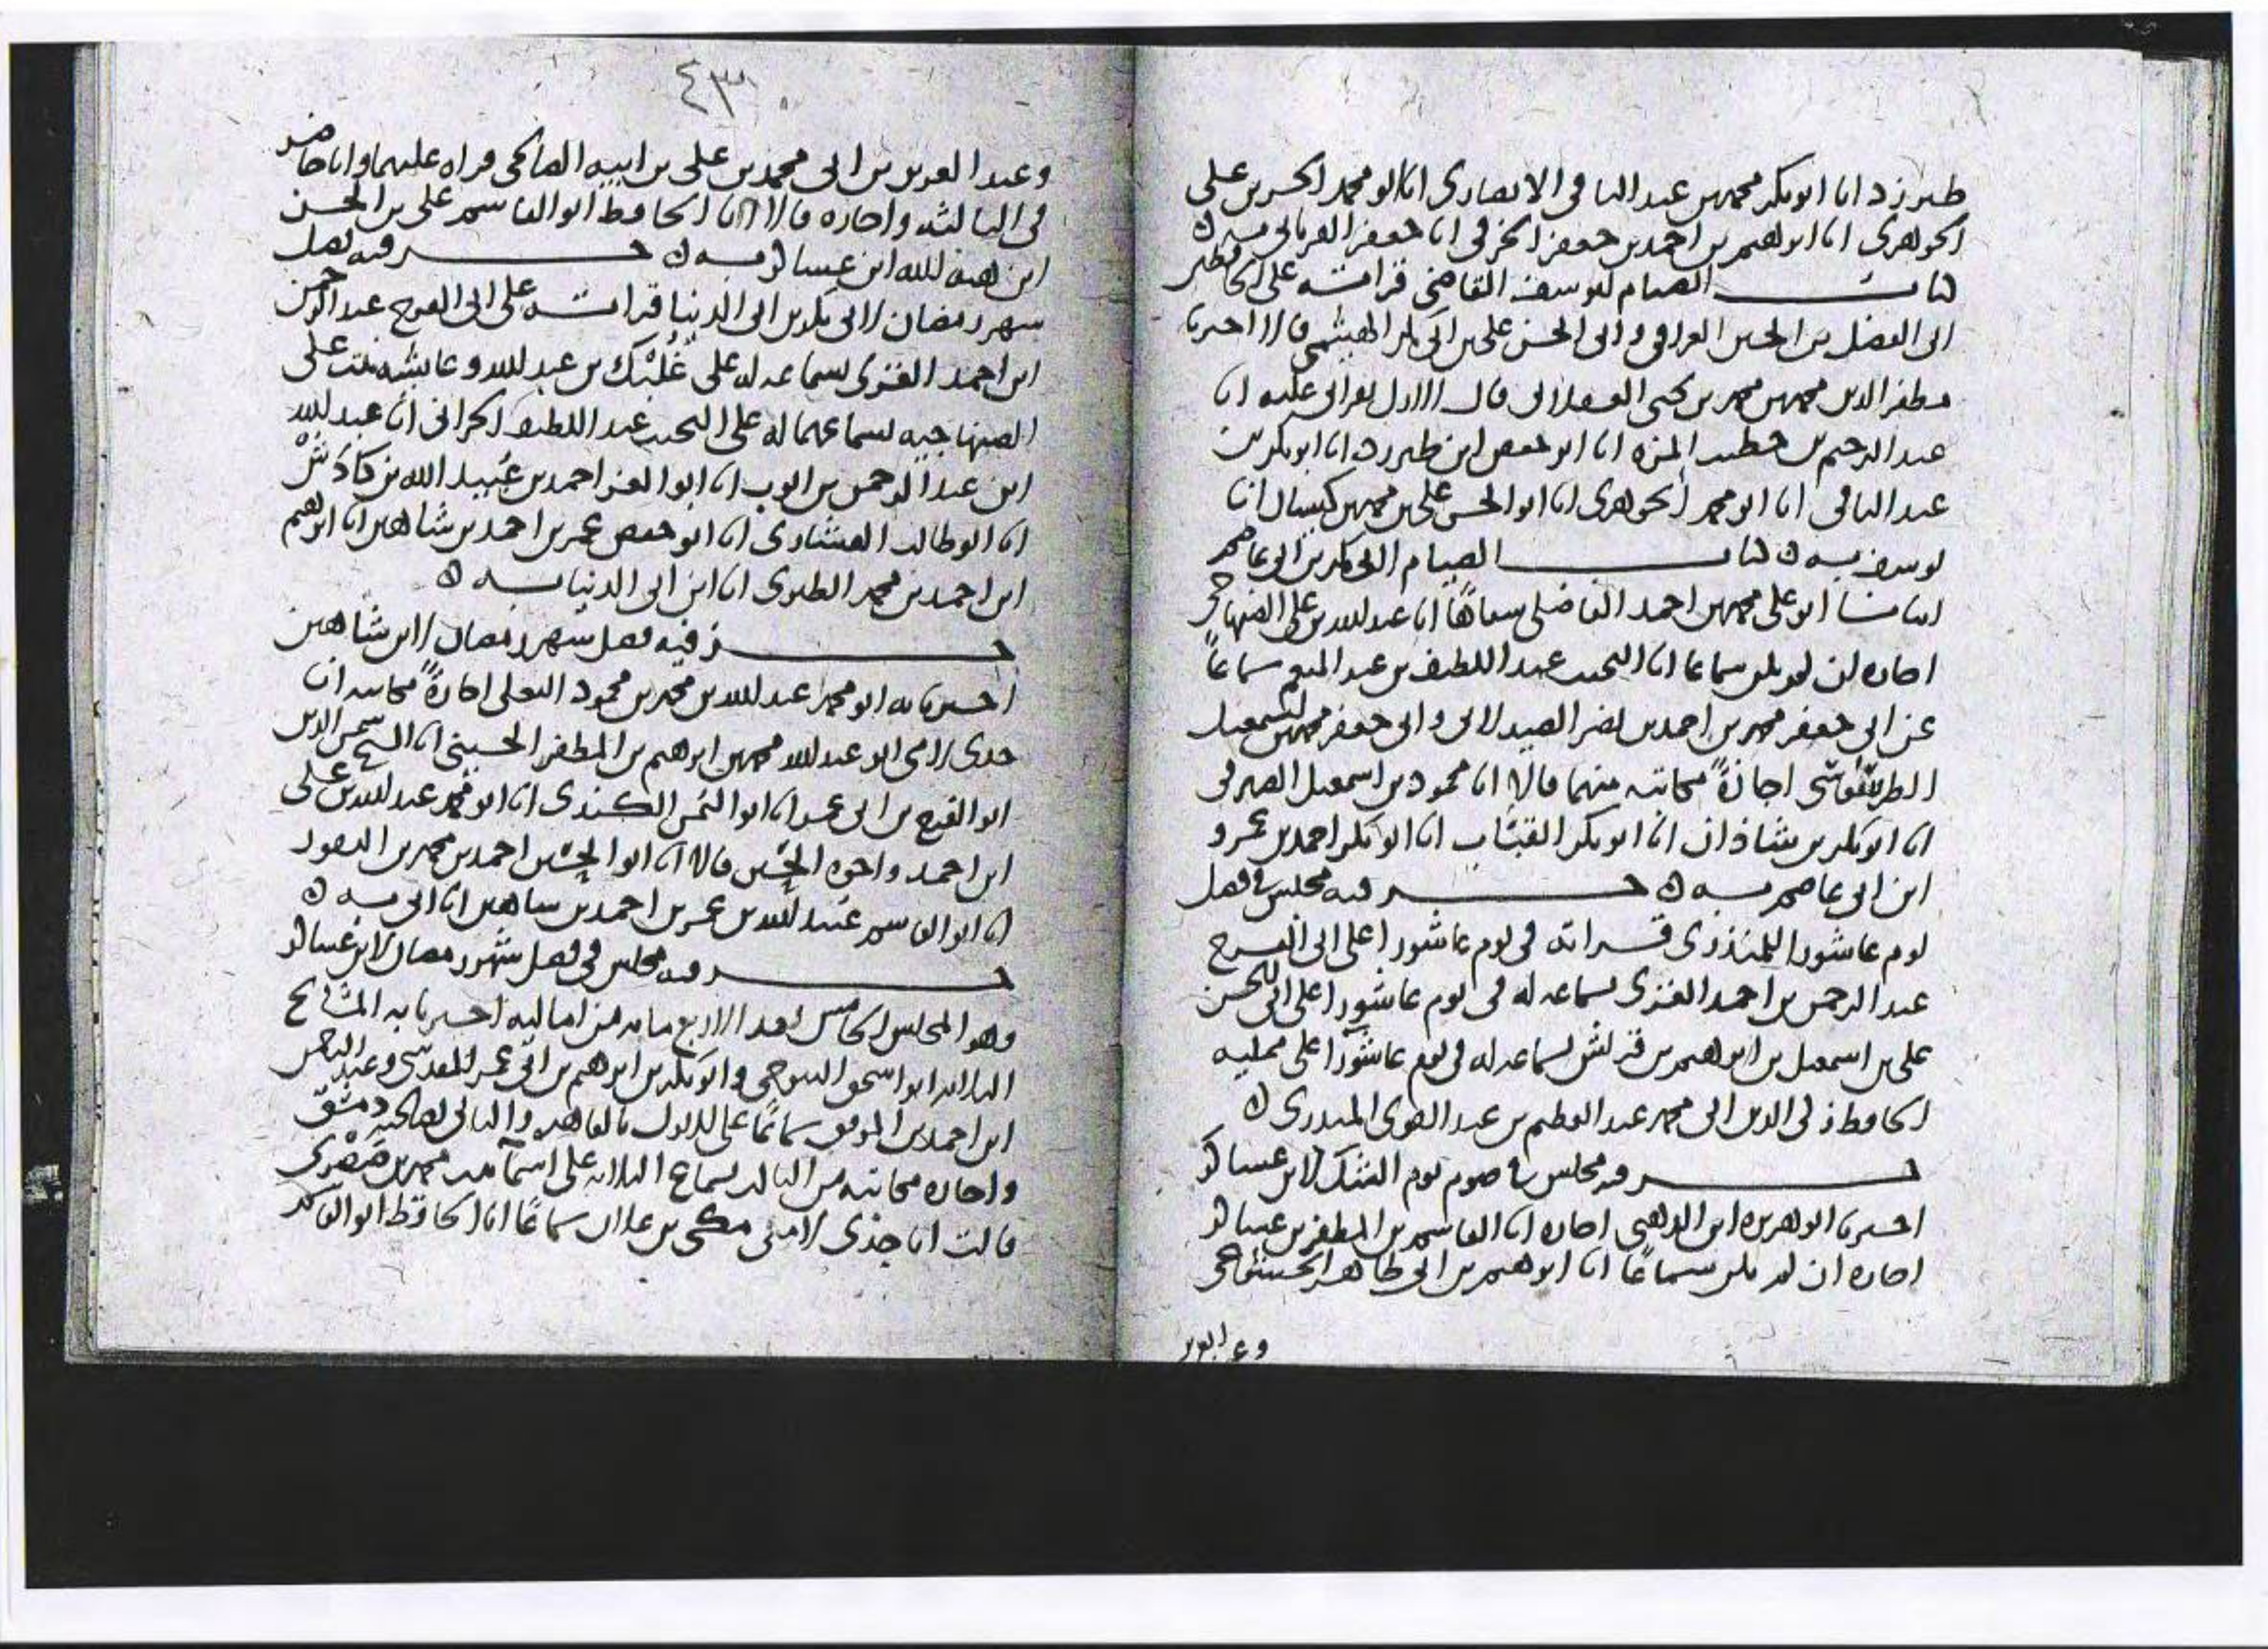 طبرزد انا ابو بكر محمد بن عبد الباقى الانصارى انا ابو محمد الحسن بن على
الجوهرى انا ابرهيم بن احمد بن جعفر الخرقى انا جعفر الفريابى به
كتاب الصيام ليوسف القاضى قراته على الحافظين
ابى الفضل بن الحسين العراقى وابى الحسن على بن ابى بكر الهيثمى قالا اخبرنا
مظفر الدين محمد بن محمد بن يحيى قال الاول بقراتى عليه انا
عبد الرحيم بن خطيب المزه انا ابو حفص ابن طبرزد انا ابو بكر بن
عبد الباقى انا ابو محمد الجوهرى انا ابو الحسن على بن محمد بن كيسان انا
يوسف به كتاب الصيام لابى بكر بن ابى عاصم
انبانا ابو على محمد بن احمد الفاضلى شفاها انا عبد الله بن على الصنهاجى
اجازه ان لم يكن سماعا انا النجيب عبد اللطيف بن عبد المنعم سماعاً
عن ابى جعفر محمد بن احمد بن نصر الصيدلانى وابى جعفر محمد بن اسمعيل
الطرسوسى اجازةً مكاتبه منهما قالا انا محمود بن اسمعيل الصيرفى
انا ابو بكر بن شاذان انا ابو بكر القبّاب انا ابو بكر احمد بن عمرو
ابن ابى عاصم به جزء فيه مجلس فى فضل
يوم عاشورا للمنذرى قراته فى يوم عاشورا على ابى الفرج
عبد الرحمن بن احمد الغزى بسماعه له فى يوم عاشورا على ابى الحسن
على بن اسمعيل بن ابرهيم بن قريش بسماعه له فى يوم عاشورآ على ممليه
الحافظ زكى الدين ابى محمد عبد العظيم بن عبد القوى المنذرى
جزء فيه مجلس فى صوم يوم الشك لابن عساكر
اخبرنا ابو هريره ابن الذهبى اجازه انا القاسم بن المظفر بن عساكر
اجازه ان لم يكن سماعًا انا ابرهيم بن ابى طاهر الخشوعى
وعبد العزيز
٤٣
وعبد العزيز بن ابى محمد بن على بن ابيه الصالحى قراه عليهما وانا حاضر
فى الثالثه واجازه قالا انا الحافظ ابو القاسم على بن الحسن
ابن هبة الله ابن عساكر به جزء فيه فضل
شهر رمضان لابى بكر بن ابى الدنيا قراته على ابى الفرج عبد الرحمن
ابن احمد الغزى بسماعه له على غُلْبَك بن عبد الله وعايشه بنت على
الصنهاجيه بسماعهما له على النجيب عبد اللطيف الحرانى انا عبد الله
ابن عبد الرحمن بن ايوب انا ابو العز احمد بن عُبيد الله بن كادش
انا ابو طالب العشارى انا ابو حفص عمر بن احمد بن شاهين انا ابرهيم
ابن احمد بن محمد انا ابن ابى الدنيا به
جزء فيه فضل شهر رمضان لابن شاهين
اخبرنا به ابو محمد عبد الله بن محمد بن محمود البعلى اجازةً مكاتبه انا
جدى لامى ابو عبد الله محمد بن ابرهيم بن المظفر الحسينى انا الشيخ شمس الدين
ابو الفرج بن ابى عمر انا ابو اليمن الكندى انا ابو محمد عبد الله بن على
ابن احمد واخوه الحسين قالا انا ابو الحسين احمد بن محمد بن النقور
انا ابو القاسم عُبيد الله بن عمر بن احمد بن شاهين انا ابى به
جزء فيه مجلس فى فضل شهر رمضان لابن عساكر
وهو المجلس الخامس بعد الاربع مايه من اماليه اخبرنا به المشايخ
الثلاثه ابو اسحق التنوخى وابو بكر بن ابرهيم بن ابى عمر المقدسى وعبد الرحمن
ابن احمد بن الموفق سماعًا على الاول بالقاهره والثانى بصالحية دمشق
واجازه مكاتبه من الثالث بسماع الثلاثه على اسمآ بنت محمد بن صَصْرَى
قالت انا جدى لامى مكى بن علان سماعًا انا الحافظ ابو القاسم